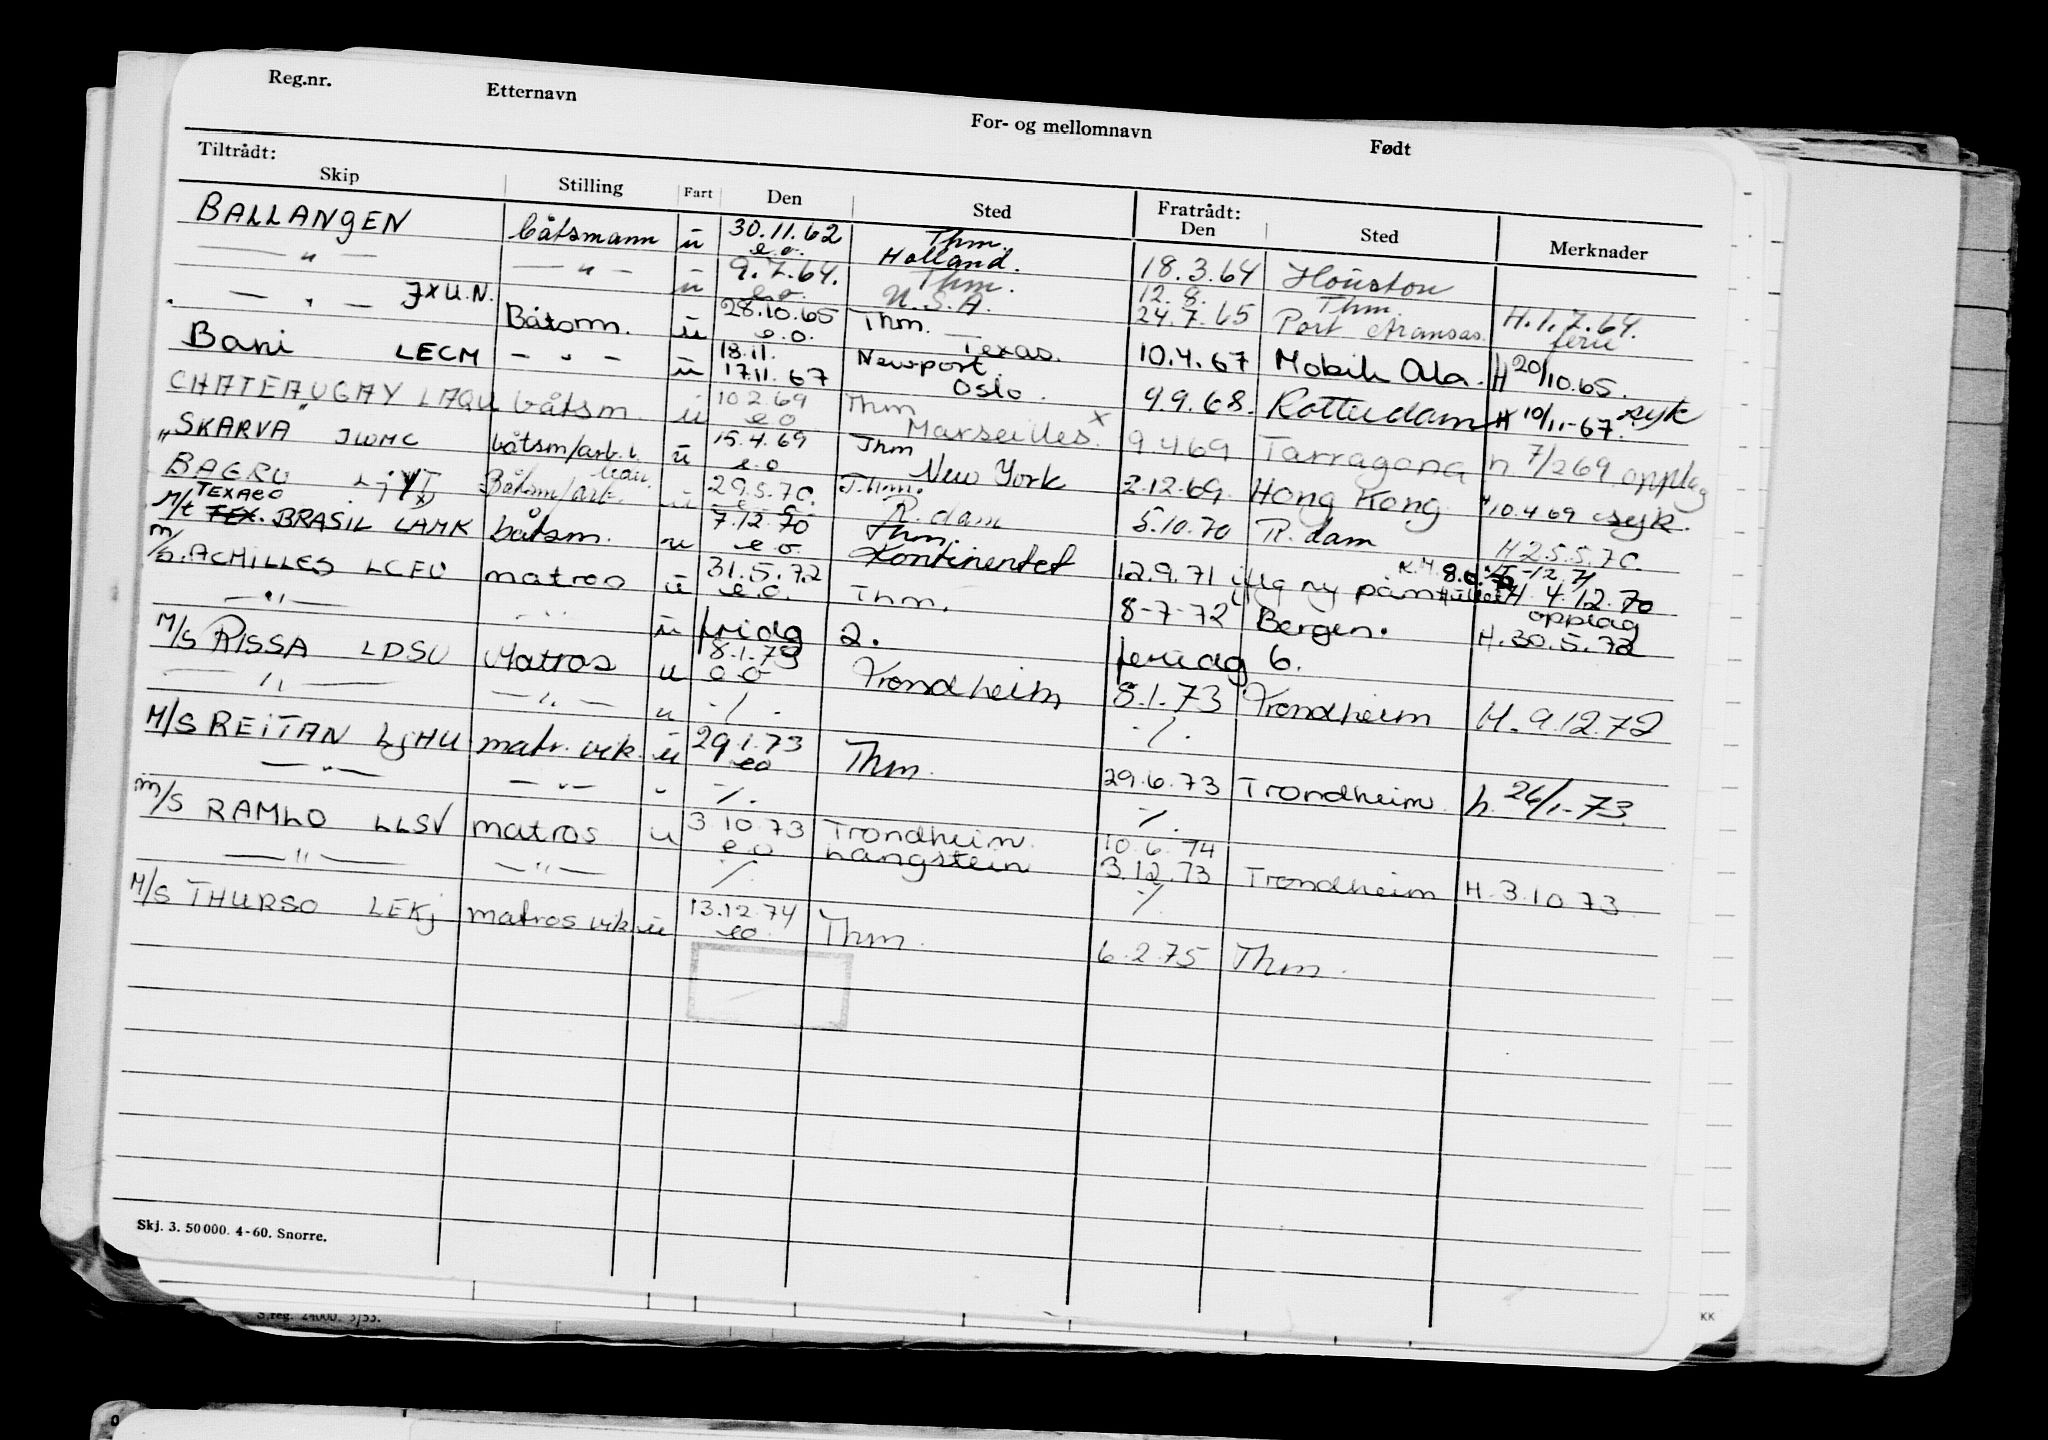 Reg.nr. Etternavn For- og mellomnavn Født
Tiltrådt: Fratrådt:
Skip Stilling Fart Den Sted Den Sted Merknader
BALLANGEN båtsmann ü 30.11.62 Thm.
e.o. Holland. 18.3.64 Houston
— " — — " — ü 9.7.64. Thm. 12.8. Thm. H.1.7.64.
e.o. U.S.A. 24.7.65 Port Aransas. ferie
— " — JXUN. Båtsm. ü 28.10.65 Thm. Texas.
e.o. Newport 10.4.67 Mobile Ala. H 20/10.65.
Bani LECM — " — ü 18.11.
17.11.67 Oslo. 9.9.68. Rotterdam H 10/11-67. syk
CHATEAUGAY LAQU båtsm. ü 10.2.69 Thm
e.o Marseilles. x 9.4.69 Tarragona h 7/2 69 opplag
"SKARVA" JWMC båtsm/arb. ü 15.4.69 Thm
e.o New York 2.12.69. Hong Kong H 10.4.69 syk.
BAERU Båtsm/arb. ü 29.5.70. Thm.
R.dam 5.10.70 R.dam H 25.5.70.
M/t TEXACO BRASIL LAMK båtsm. ü 7.12.70 Thm.
e.o. Kontinentet 12.9.71 iflg ny påm H. 4.12.70
opplag
m/s. ACHILLES LCEU matros ü 31.5.72
e.o. Thm. 8-7-72 Bergen. H.30.5.72
— " — — " — ü fridg 2. feridg 6.
M/S RISSA LDSU Matros u 8.1.73
Trondheim 8.1.73 Trondheim H. 9.12.72
— " — — " — u ./. ./.
M/S REITAN LJHU matr. vik. ü 29.1.73
eo Thm. 29.6.73 Trondheim h. 26/1-73.
— " — — " — " ./. ./.
m/s RAMLO LLSV matros u 3.10.73 Trondheim. 10.6.74
e.o Langstein 3.12.73 Trondheim H. 3.10.73
— " — — " — ./. ./.
M/S THURSO LEKJ matros vik ü 13.12.74
eo. Thm. 6.2.75 Thm.
Skj. 3. 50 000. 4-60. Snorre.
S.reg. 24000. 3/53.
KK